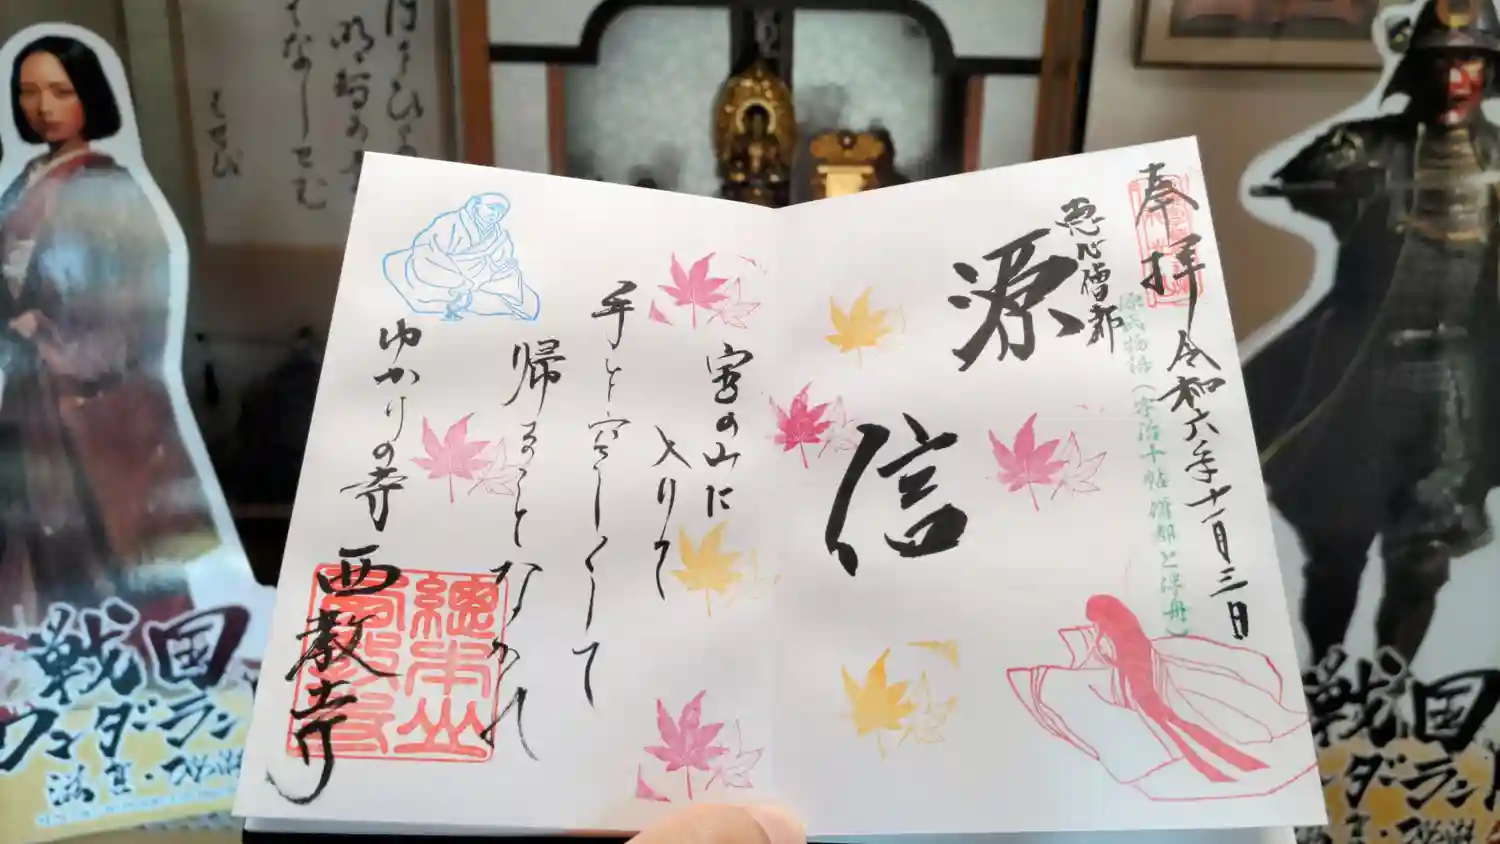 奉拝
令和六年十一月三日
恵心僧都
源信
源氏物語(宇治十帖 僧都と浮舟)
宝の山に
入りて
手を空しくして
帰ることなかれ
ゆかりの寺
西教寺
總本山
西教寺
戦国
ワンダーランド
滋賀・びわ湖
戦国
ワンダーランド
滋賀・びわ湖